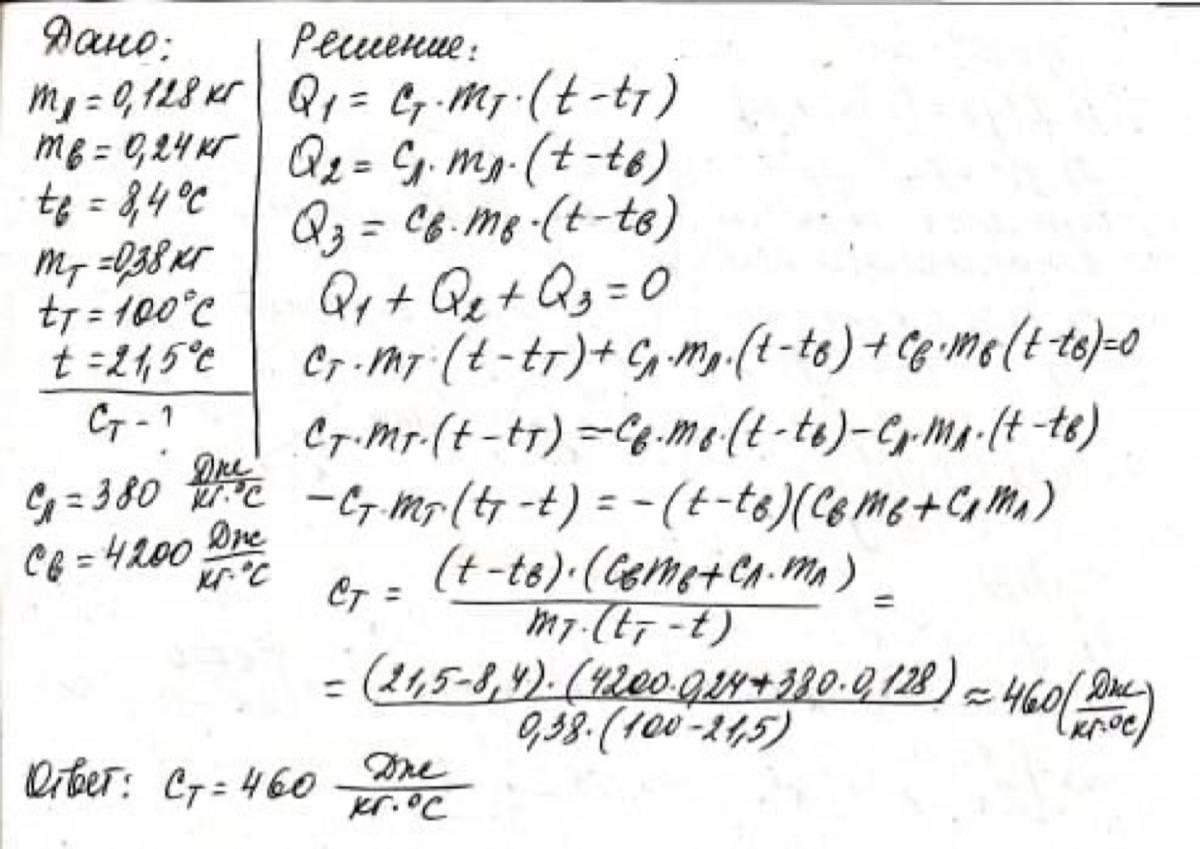 Дано:
mл = 0,128 кг
mв = 0,24 кг
tв = 8,4 °C
mт = 0,38 кг
tт = 100 °C
t = 21,5 °C
cт - ?
cл = 380 Дж/кг·°C
cв = 4200 Дж/кг·°C
Решение:
Q1 = cт · mт · (t - tт)
Q2 = cл · mл · (t - tв)
Q3 = cв · mв · (t - tв)
Q1 + Q2 + Q3 = 0
cт · mт · (t - tт) + cл · mл · (t - tв) + cв · mв (t - tв) = 0
cт · mт · (t - tт) = -cв · mв · (t - tв) - cл · mл · (t - tв)
-cт · mт · (tт - t) = -(t - tв)(cв mв + cл mл)
cт = (t - tв) · (cв mв + cл · mл) / mт · (tт - t) =
= (21,5 - 8,4) · (4200 · 0,24 + 380 · 0,128) / 0,38 · (100 - 21,5) ≈ 460 (Дж/кг·°C)
Ответ: cт = 460 Дж/кг·°C